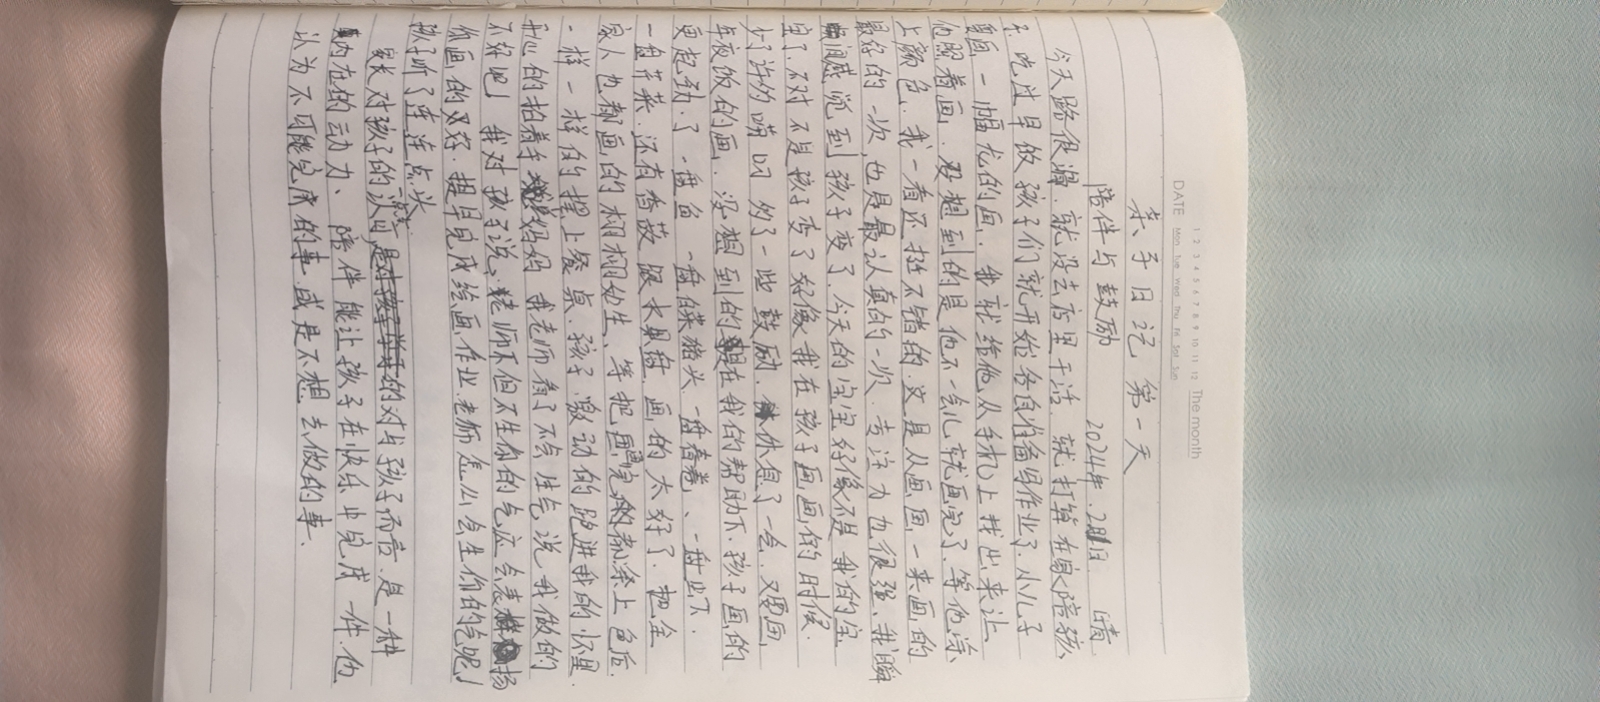 The month
DATE
1 2 3 4 5 6 7 8 9 10 11 12
Mon Tue Wed Thu Fri Sat Sun
亲子日记 第一天
陪伴与鼓励 2024年.2月1日 晴
今天路很滑.就没去店里干活.就打算在家陪孩
子.吃过早饭孩子们就开始各自准备写作业了.小儿子
要画一幅龙的画.我就给他从手机上找出来让
他照着画.没想到的是他不一会儿就画完了.等他涂
上颜色.我一看还挺不错的.这是从画画一来画的
最好的一次.也是最认真的一次.专注力也很强.我瞬
间感觉到孩子变了.今天的宝宝好像不是我的宝
宝了.不对不是孩子变了好像我在孩子画画的时候.
少了许的唠叨 多了一些鼓励.休息了一会.又要画.
年夜饭的画.没想到的是在我的帮助下.孩子画的
更起劲了.一盘鱼 一盘供菜猪头.一盘春卷、一盘虾.
一盘芹菜.还有香菇 跟水果盘 画的太好了.把全
家人也都画的栩栩如生、等把画完的都涂上色后.
一样一样的摆上餐桌.孩子激动的跑进我的怀里.
开心的拍着手说妈妈 我老师看了不会生气说我做的
不好吧」 我对孩子说:老师不但不生你的气应会表扬
你画的又好.提早完成绘画.作业.老师怎么会生你的气呢」
孩子听了连连点头.
家长对孩子的认可 的对与孩子而言.是一种
内在的动力、陪伴能让孩子在快乐中完成一件他
认为不可能完成的事.或是不想去做的事.